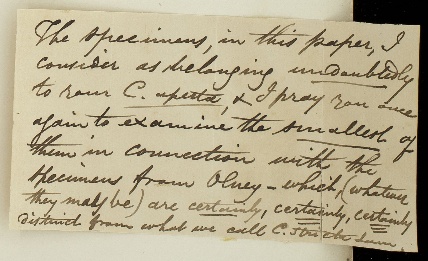 The specimens, in this paper, I
consider as belonging undoubtedly
to your C. aperta, & I pray you once
again to examine the smallest of
them in connection with the
specimens from Olney – which, (whatever
they may be) are certainly, certainly, certainly
distinct from what we call C. stricta here.